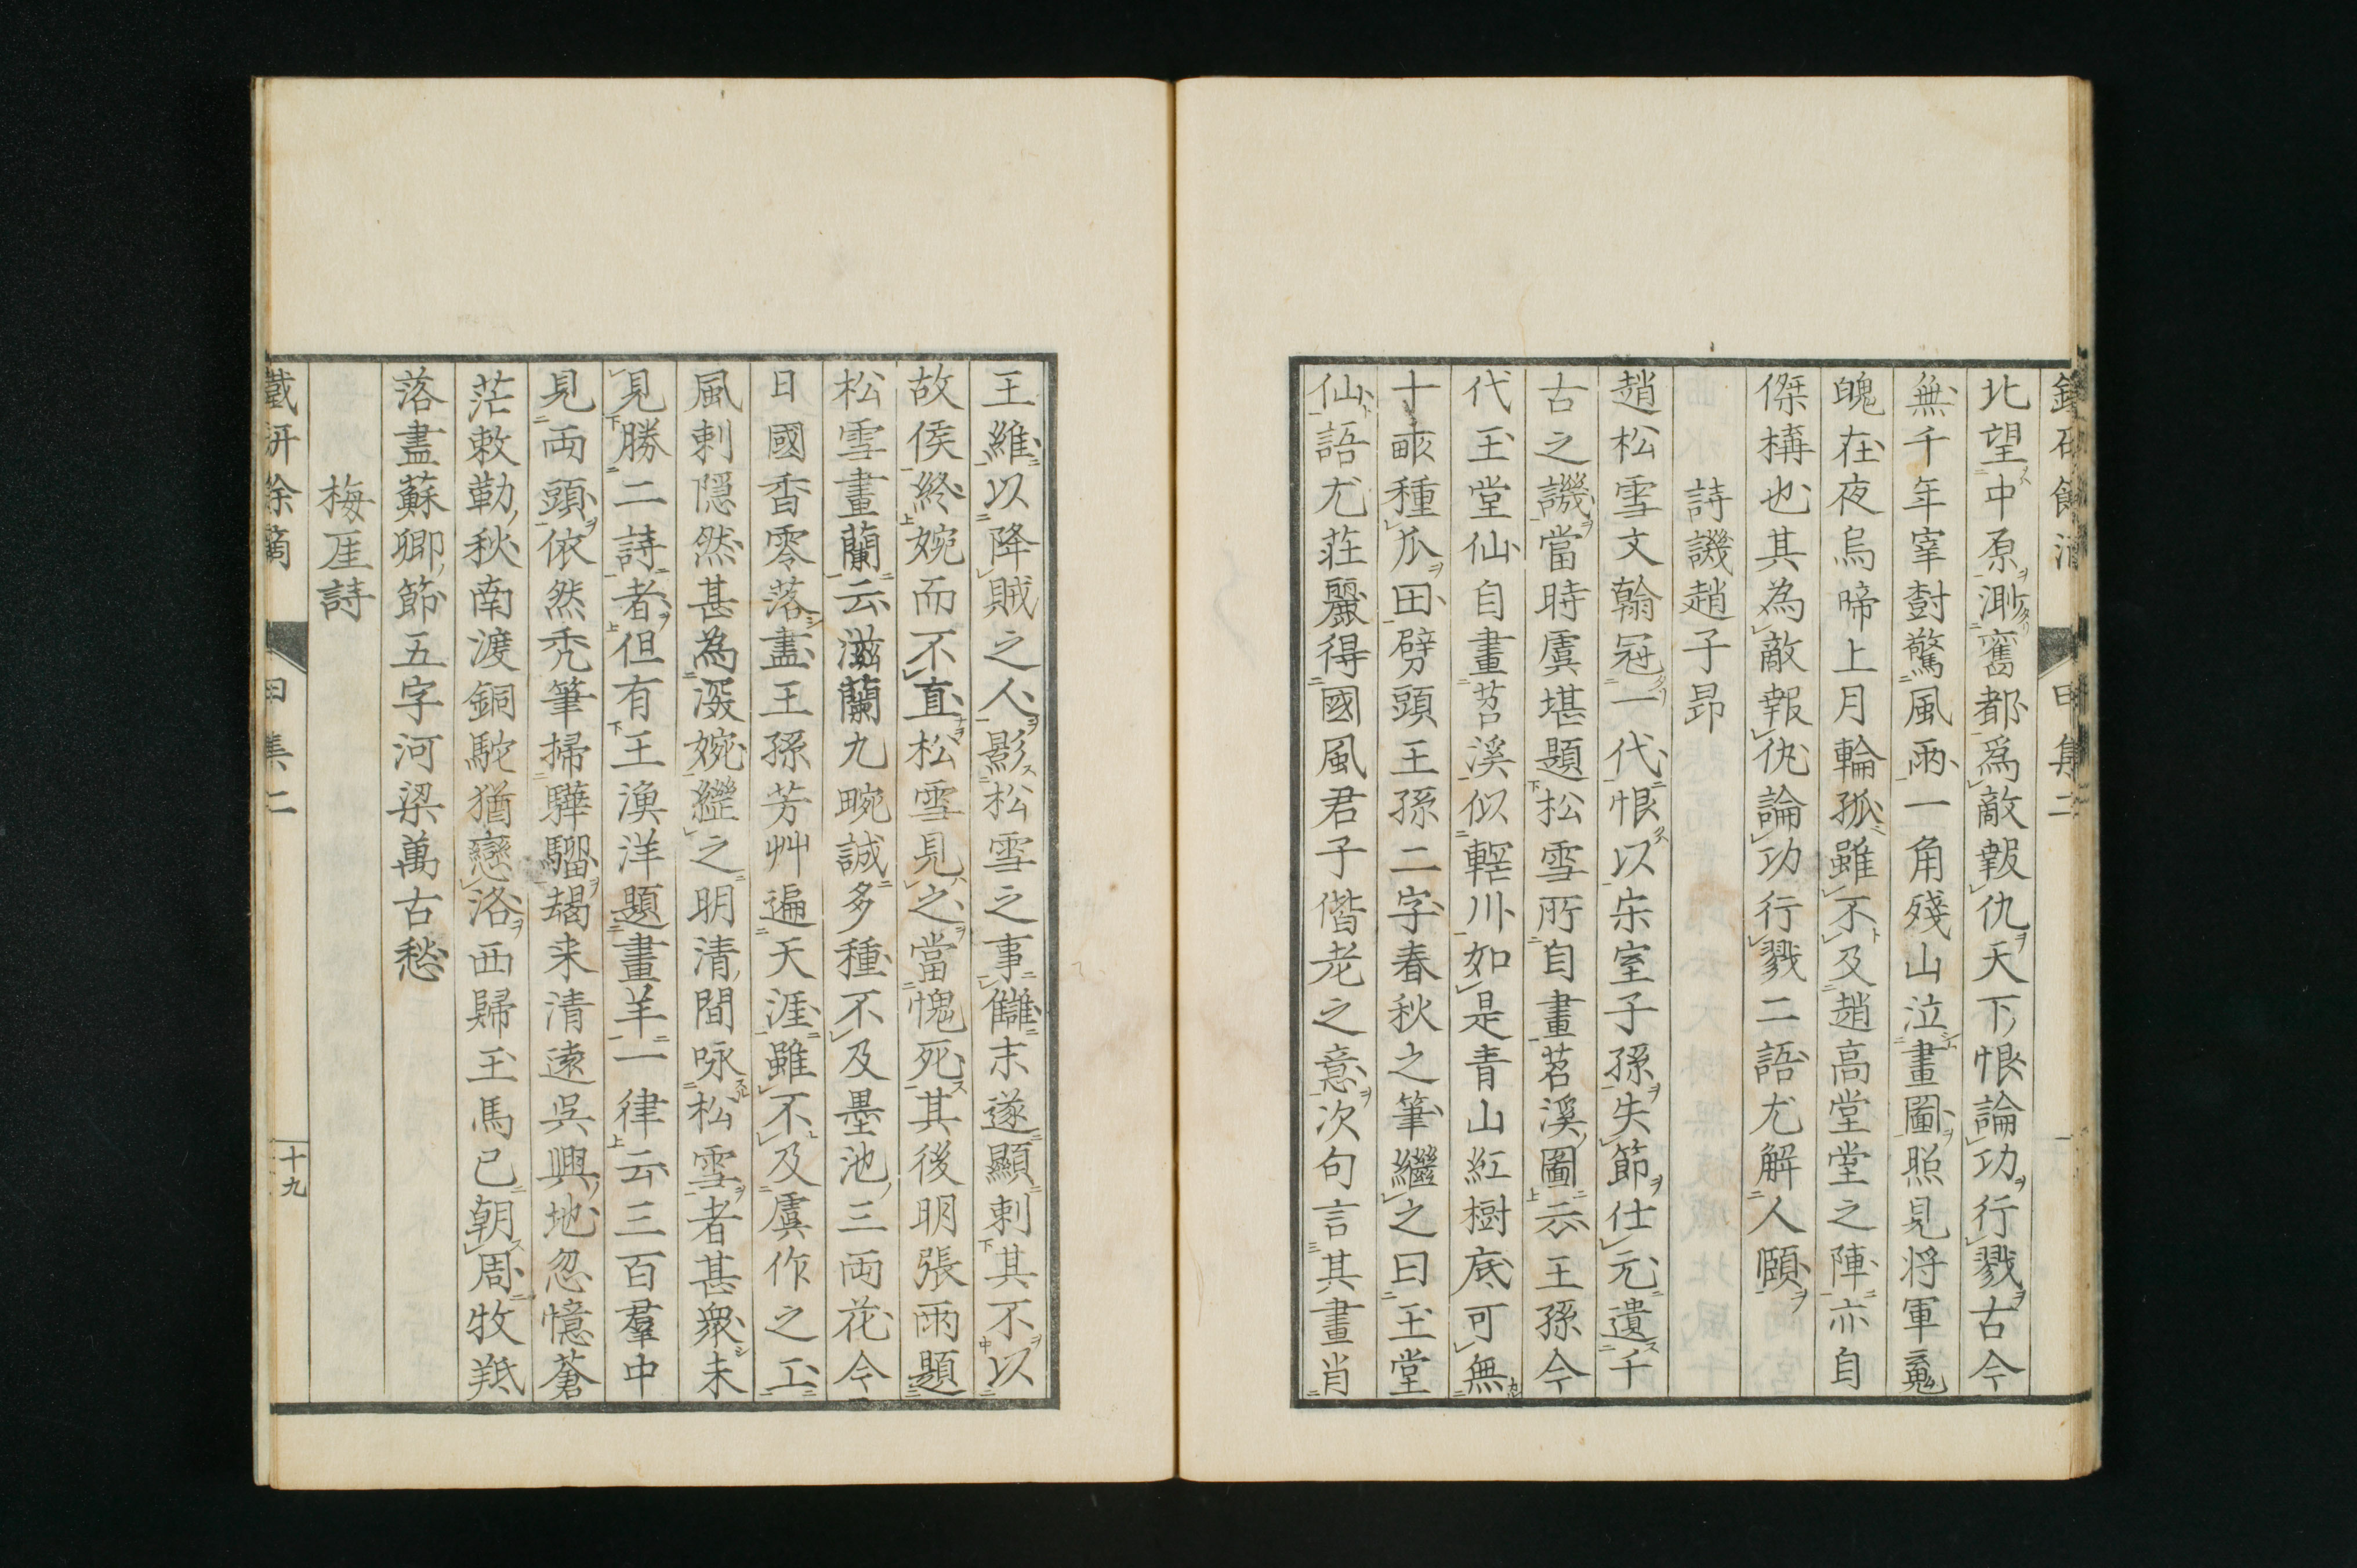 北望中原渺舊都為敵報仇天下恨論功行戮古今
無千年宰樹驚風雨一角殘山泣畫圖照見將軍冤
魄在夜烏啼上月輪孤雖不及趙高堂堂之陣亦自
傑構也其為敵報仇論功行戮二語尤解人頤
詩譏趙子昂
趙松雪文翰冠一代恨以宋室子孫失節仕元遺千
古之譏當時虞堪題松雪所自畫苕溪圖云王孫今
代玉堂仙自畫苕溪似輞川如是青山紅樹底可無
十畝種瓜田劈頭王孫二字春秋之筆繼之曰玉堂
仙語尤莊麗得國風君子偕老之意次句言其畫肖
王維以降賊之人影松雪之事讎末遂顯刺其不以
故侯終婉而不直松雪見之當愧死其後明張雨題
松雪畫蘭云滋蘭九畹誠多種不及墨池三兩花今
日國香零落盡王孫芳艸遍天涯雖不及虞作之工
風刺隱然甚為深婉繼之明清間咏松雪者甚衆未
見勝二詩者但有王漁洋題畫羊一律云三百羣中
見兩頭依然禿筆掃驊騮朅来清遠吳興地忽憶蒼
茫敕勒秋南渡銅駝猶戀洛西歸玉馬已朝周牧羝
落盡蘇卿節五字河梁萬古愁
梅厓詩
鐵研餘滴
甲集二
十九